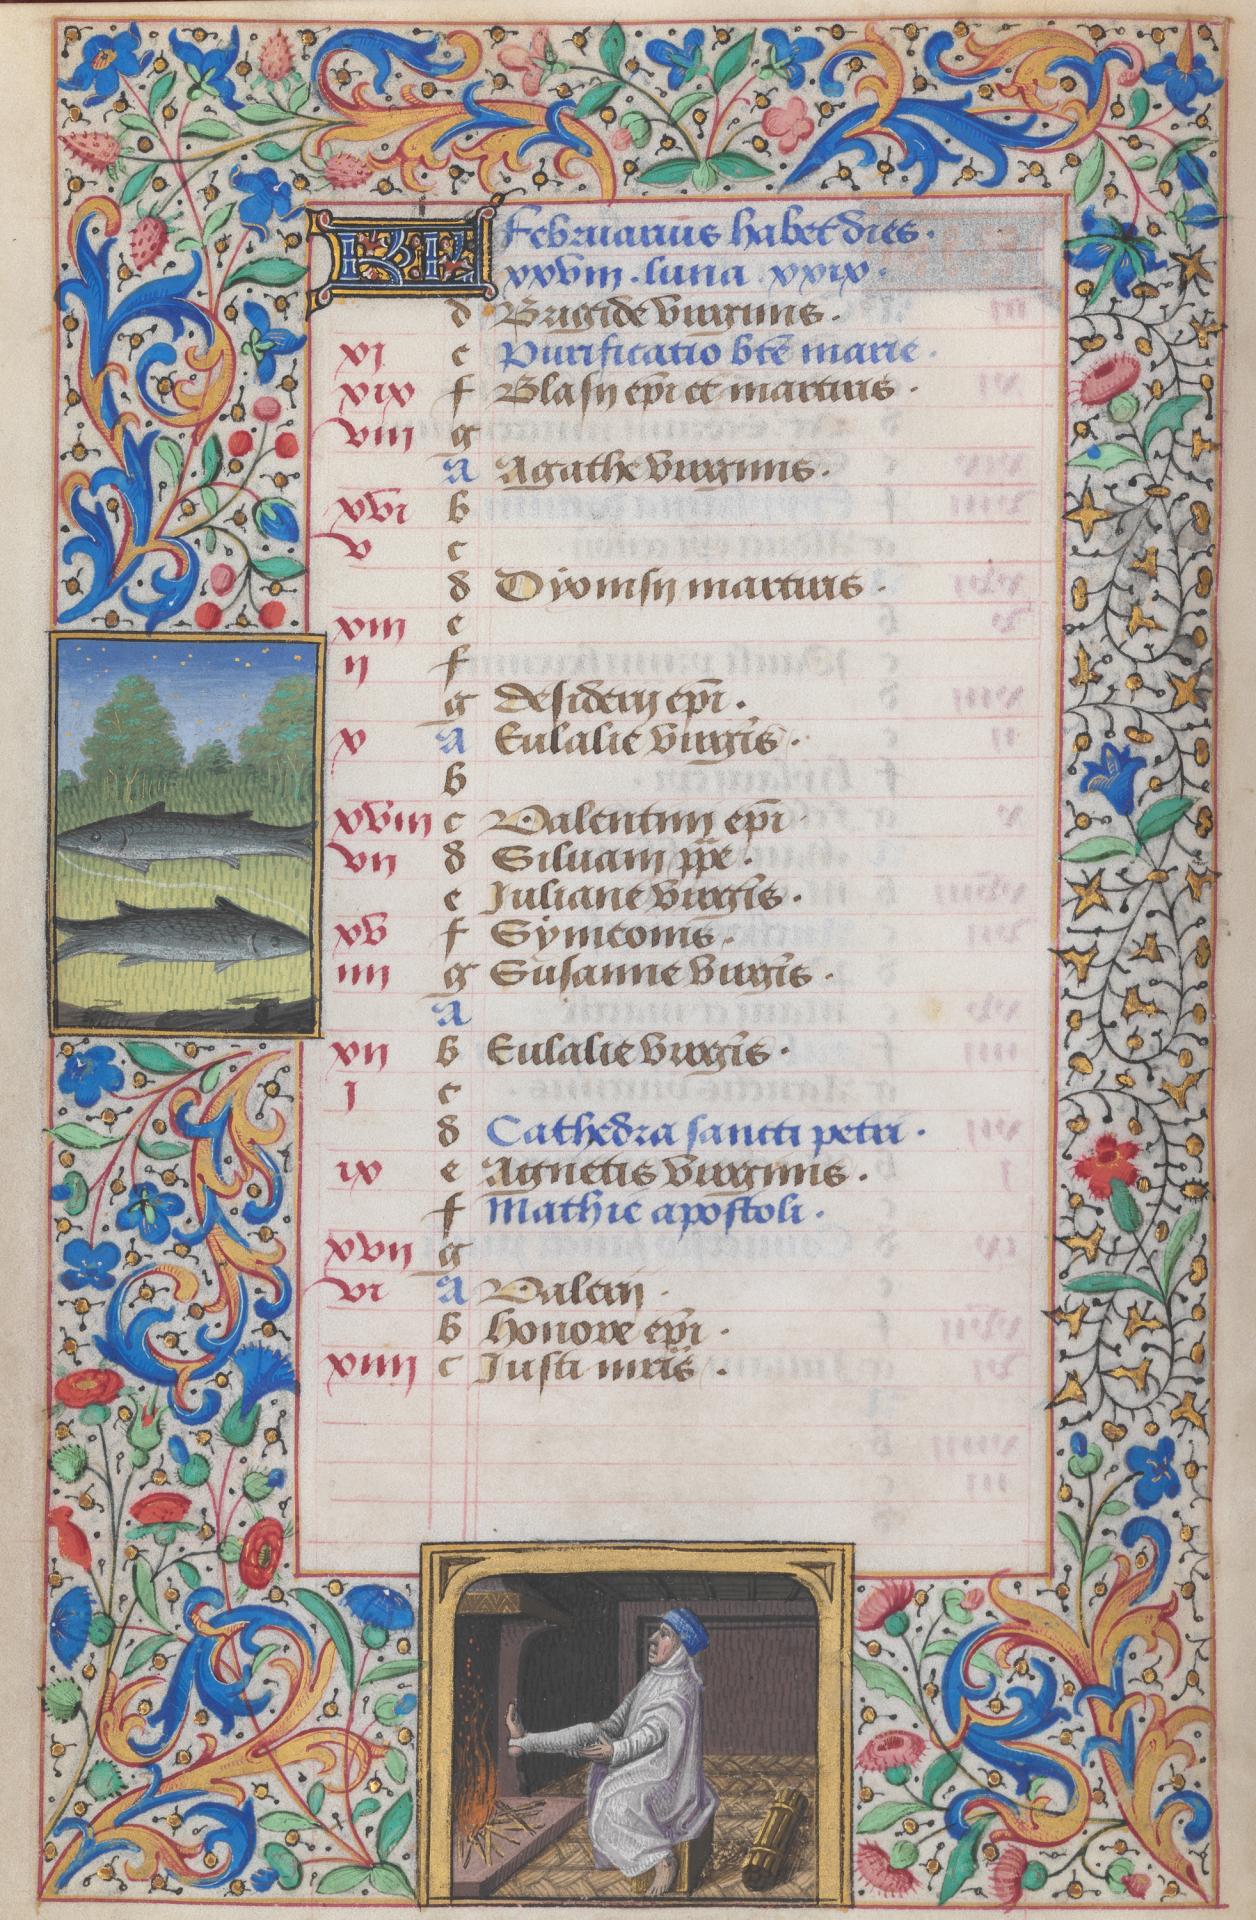 KL Februarius habet dies.
xxviii. luna xxix.
d Brigide virginis.
xi e Purificatio bte marie.
xix f Blasii epi et martiris.
viii g
a Agathe virginis.
xvi b
v c
d Dyonisii martiris.
xiii e
ii f
g Desiderii epi.
x a Eulalie virgis.
b
xviii c Valentini epi.
vii d Siluani ppe.
e Juliane virgis.
xv f Symeonis.
iiii g Susanne virgis.
a
xii b Eulalie virgis.
i c
d Cathedra sancti petri.
ix e Agnetis virginis.
f Mathie apostoli.
xvii g
vi a Valerii.
b Honore epi.
xiiii c Justi mris.